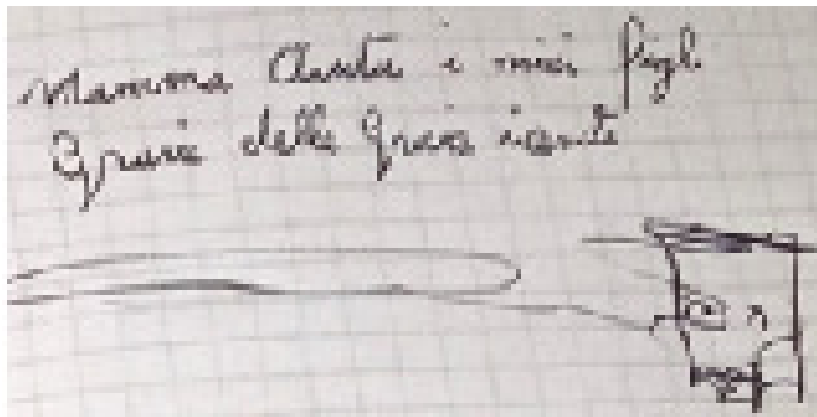 Mamma Aiuta i miei figli
Grazie delle grazie ricevute